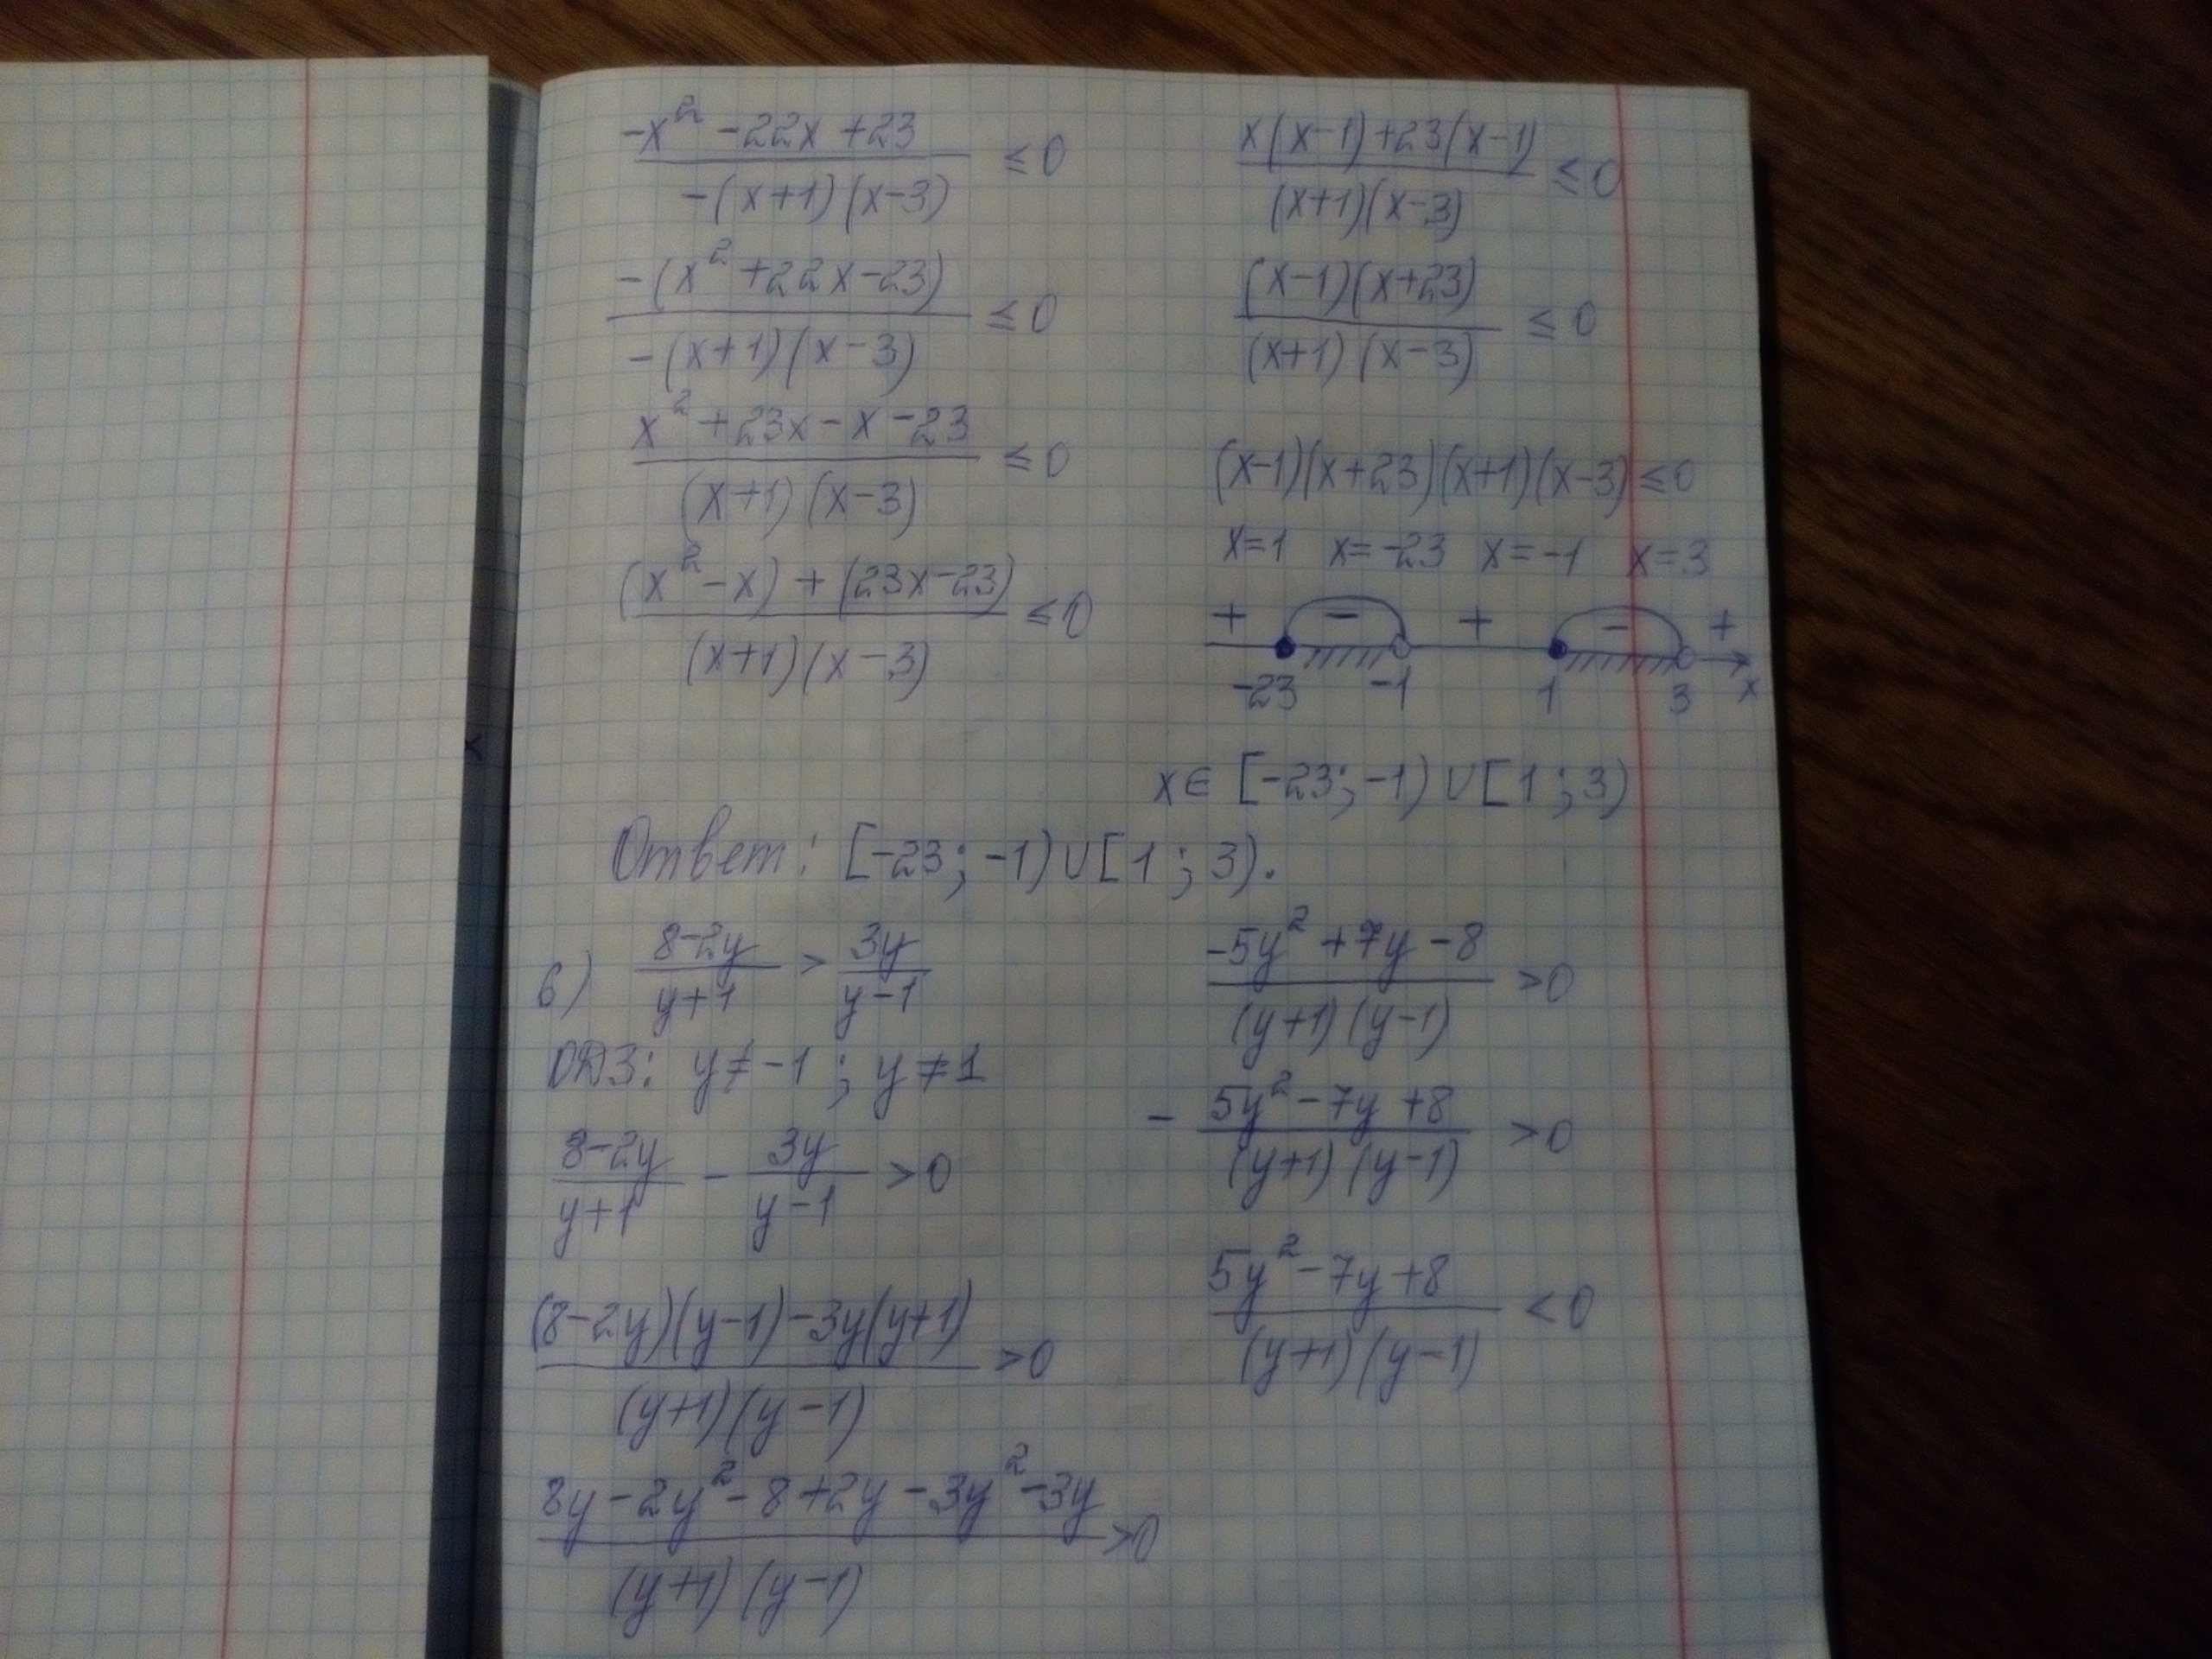 (-x² - 22x + 23)/(-(x+1)(x-3)) ≤ 0
(-(x² + 22x - 23))/(-(x+1)(x-3)) ≤ 0
(x² + 23x - x - 23)/((x+1)(x-3)) ≤ 0
((x² - x) + (23x - 23))/((x+1)(x-3)) ≤ 0
(x(x-1) + 23(x-1))/((x+1)(x-3)) ≤ 0
((x-1)(x+23))/((x+1)(x-3)) ≤ 0
(x-1)(x+23)(x+1)(x-3) ≤ 0
x=1 x=-23 x=-1 x=3
+ - + - +
-23 -1 1 3 x
x∈[-23; -1)∪[1; 3)
Ответ: [-23; -1)∪[1; 3).
б) (8-2y)/(y+1) > 3y/(y-1)
ОДЗ: y≠-1; y≠1
(8-2y)/(y+1) - 3y/(y-1) > 0
((8-2y)(y-1) - 3y(y+1))/((y+1)(y-1)) > 0
(8y - 2y² - 8 + 2y - 3y² - 3y)/((y+1)(y-1)) > 0
(-5y² + 7y - 8)/((y+1)(y-1)) > 0
- (5y² - 7y + 8)/((y+1)(y-1)) > 0
(5y² - 7y + 8)/((y+1)(y-1)) < 0